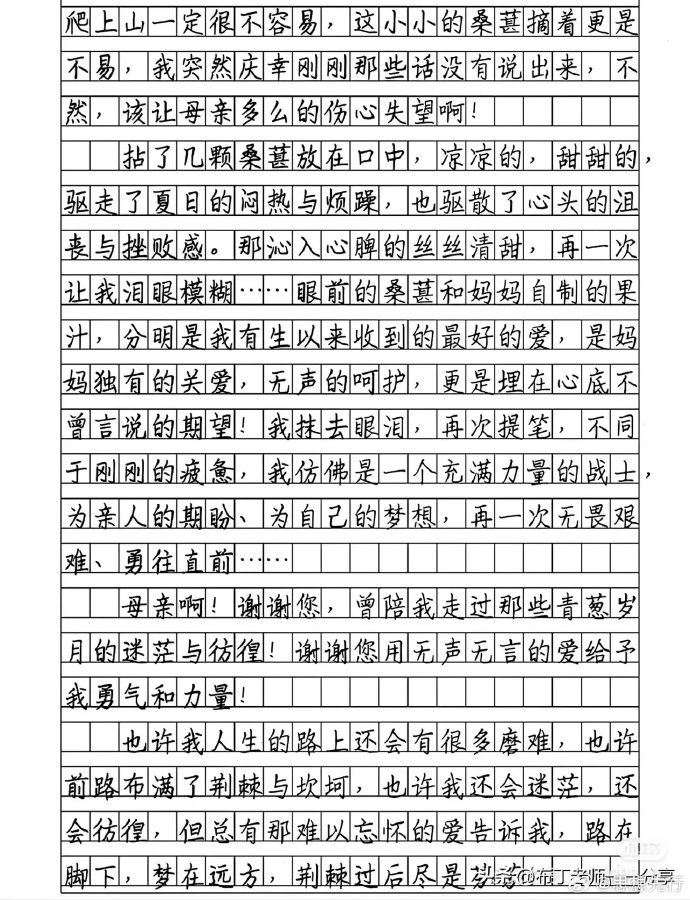 爬上山一定很不容易，这小小的桑葚摘着更是
不易，我突然庆幸刚刚那些话没有说出来，不
然，该让母亲多么的伤心失望啊！
拈了几颗桑葚放在口中，凉凉的，甜甜的，
驱走了夏日的闷热与烦躁，也驱散了心头的沮
丧与挫败感。那沁入心脾的丝丝清甜，再一次
让我泪眼模糊……眼前的桑葚和妈妈自制的果
汁，分明是我有生以来收到的最好的爱，是妈
妈独有的关爱，无声的呵护，更是埋在心底不
曾言说的期望！我抹去眼泪，再次提笔，不同
于刚刚的疲惫，我仿佛是一个充满力量的战士，
为亲人的期盼、为自己的梦想，再一次无畏艰
难、勇往直前……
母亲啊！谢谢您，曾陪我走过那些青葱岁
月的迷茫与彷徨！谢谢您用无声无言的爱给予
我勇气和力量！
也许我人生的路上还会有很多磨难，也许
前路布满了荆棘与坎坷，也许我还会迷茫，还
会彷徨，但总有那难以忘怀的爱告诉我，路在
脚下，梦在远方，荆棘过后尽是芬
头条@布丁老师 分享